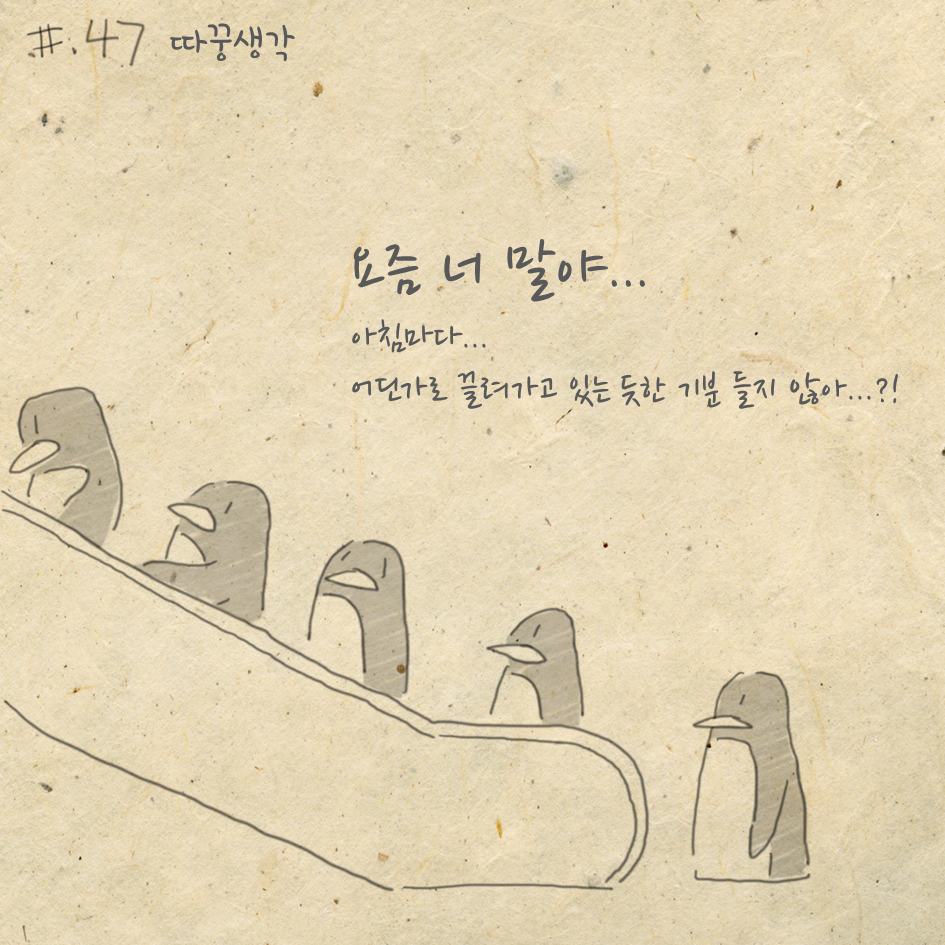 #.47 따꿍생각
요즘 너 말야...
아침마다...
어딘가로 끌려가고 있는 듯한 기분 들지 않아...?!